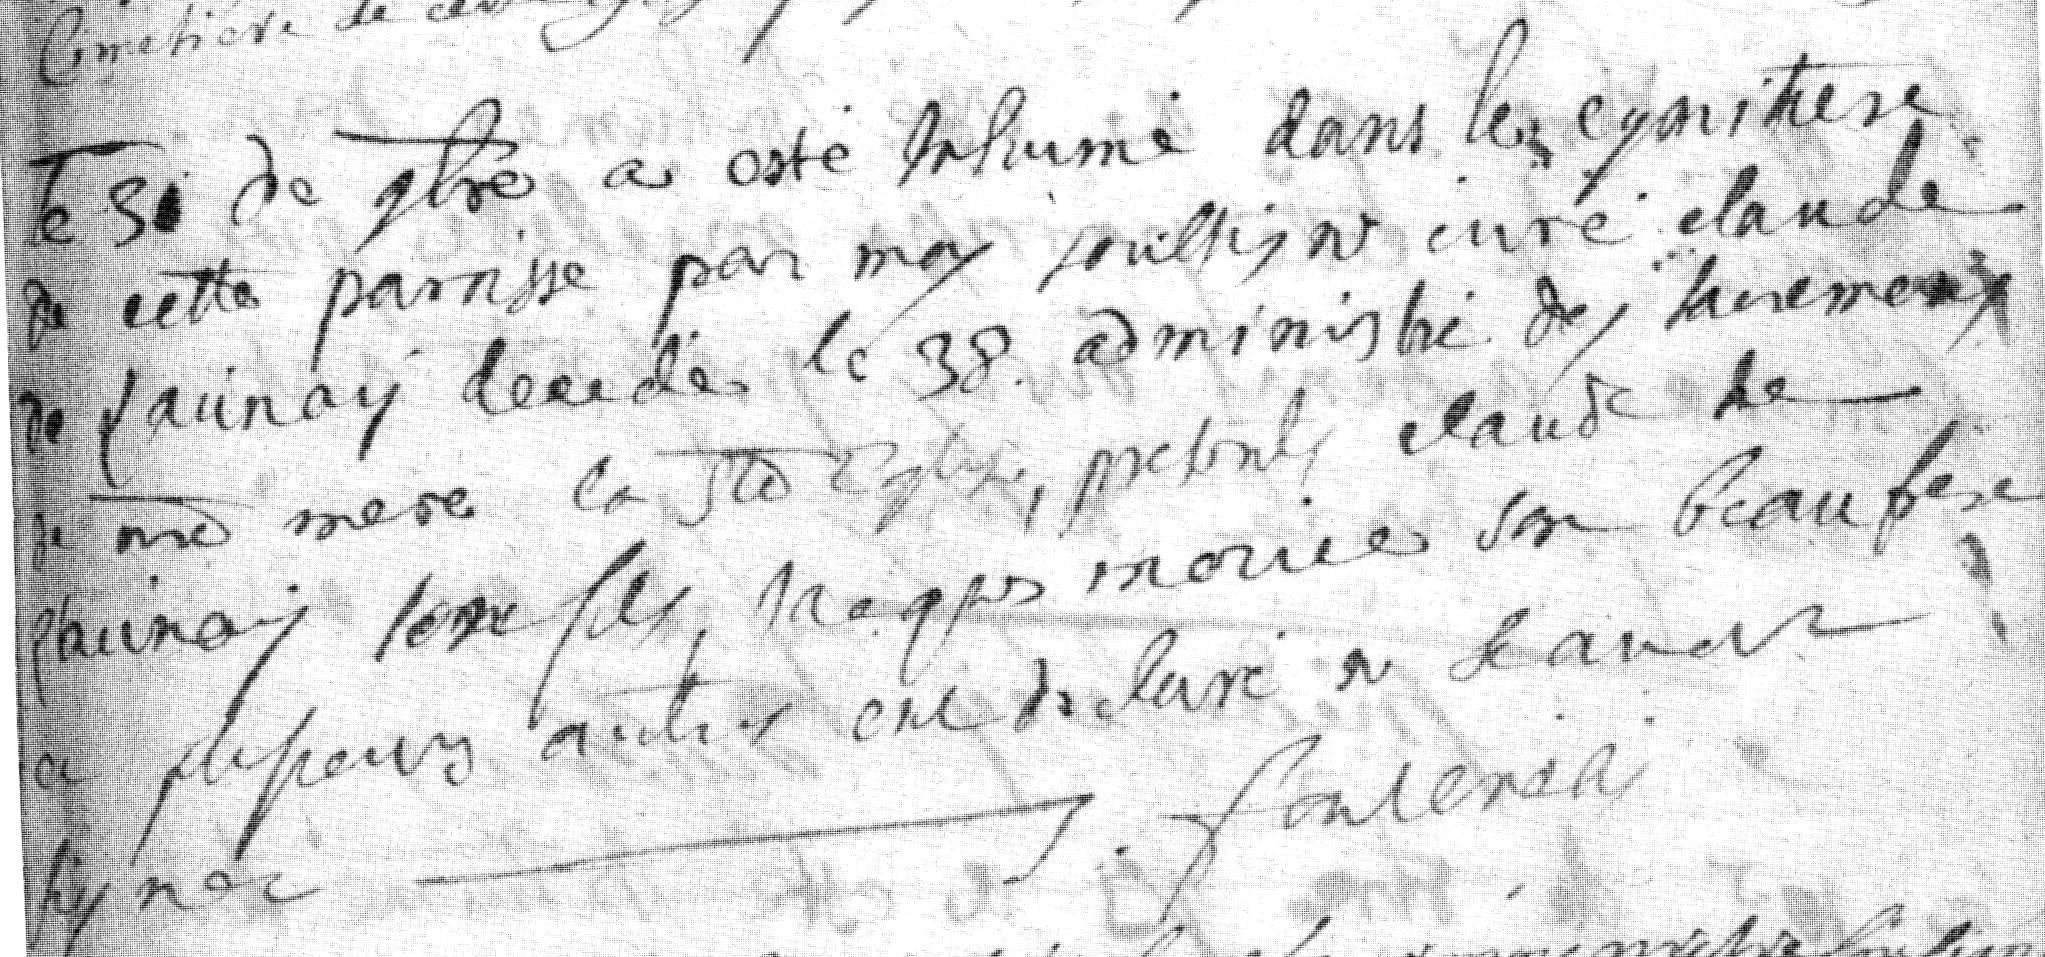 Cimetiere de
Le 31 de 9bre a esté Inhumé dans le cymitiere
de cette paroisse par moy soussigné curé claude
de launay decedé le 30. administré des sacremens
de nre mere la Ste Eglise, presents claude De
launay son fils, Jacques son beaufrere
a plusieurs autres ont declaré ne scavoir
signer